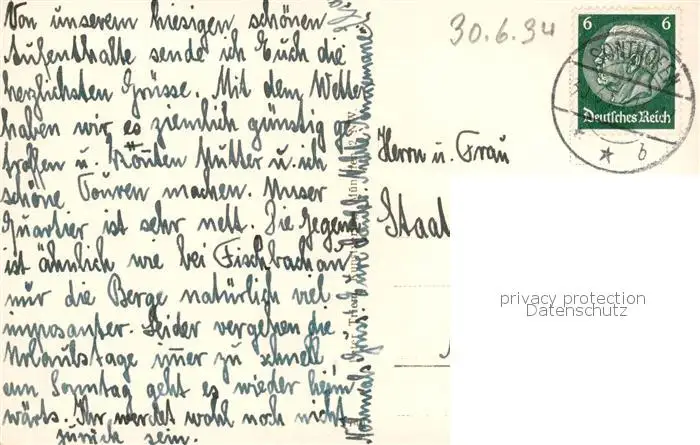 Von unserem hiesigen schönen
Aufenthalte sende ich Euch die
herzlichsten Grüsse. Mit dem Wetter
haben wir es ziemlich günstig ge
troffen u. könnten Mutter u. ich
schöne Touren machen. Unser
Quartier ist sehr nett. Die Gegend
ist ähnlich wie bei Fischbach an
nur die Berge natürlich viel
imposanter. Leider vergehen die
Urlaubstage im̄er zu schnell,
am Sonntag geht es wieder heim
wärts. Ihr werdet wohl noch nicht
zurück sein.
Nochmals Gruss Eure
30.6.34
6 6
SONTHOFEN
Deutsches Reich
* b
Herrn u. Frau
Staat
privacy protection
Datenschutz